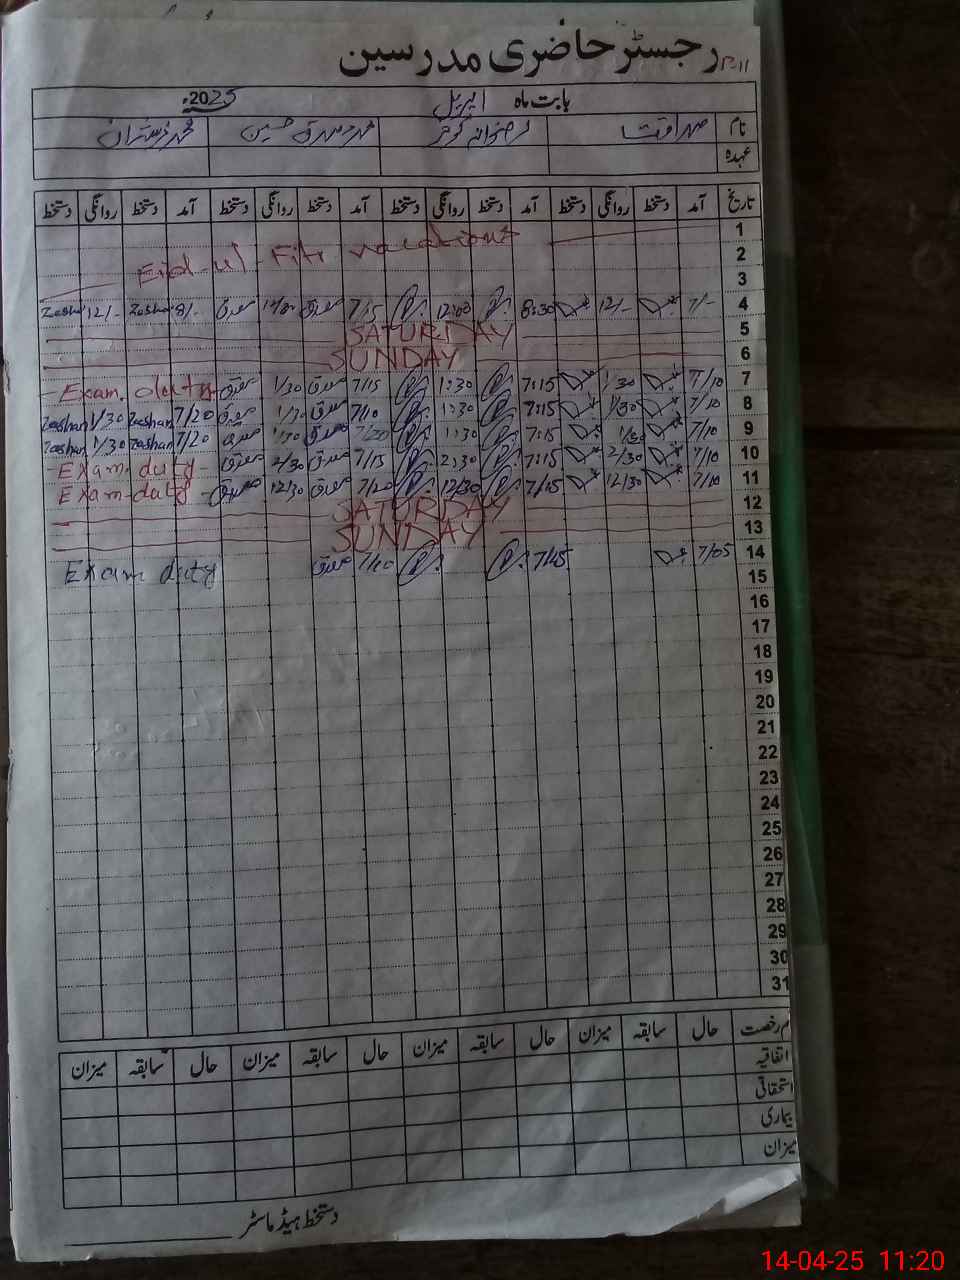 رجسٹر حاضری مدرسین
بابت ماہ اپریل 2025ء
نام صداقت رضوانہ کوثر محمد صدیق حسین محمد ذیشان
عہدہ
تاریخ آمد دستخط روانگی دستخط آمد دستخط روانگی دستخط آمد دستخط روانگی دستخط آمد دستخط روانگی دستخط
1
2 Eid-ul-Fitr vacations
3
4 7/- 12/- 8:30 12:00 7/15 صدیق صدیق 8/- Zeshan 12/- Zeshan
5 SATURDAY
6 SUNDAY
7 7/10 1/30 7:15 1:30 7/15 صدیق 1/30 صدیق Exam. duty
8 7/10 1/30 7:15 1:30 7/10 صدیق 1/30 صدیق 7/20 Zeshan 1/30 Zeshan
9 7/10 1/30 7:15 1:30 7/20 صدیق 1/30 صدیق 7/20 Zeshan 1/30 Zeshan
10 7/10 2/30 7:15 2:30 7/15 صدیق 2/30 صدیق Exam. duty
11 7/10 12/30 7/15 12/30 7/20 صدیق 12/30 صدیق Exam-duty
12 SATURDAY
13 SUNDAY
14 7/05 7/45 صدیق Exam duty
15
16
17
18
19
20
21
22
23
24
25
26
27
28
29
30
31
رخصت حال سابقہ میزان حال سابقہ میزان حال سابقہ میزان حال سابقہ میزان
اتفاقیہ
استحقاقی
بیماری
میزان
دستخط ہیڈ ماسٹر
14-04-25 11:20